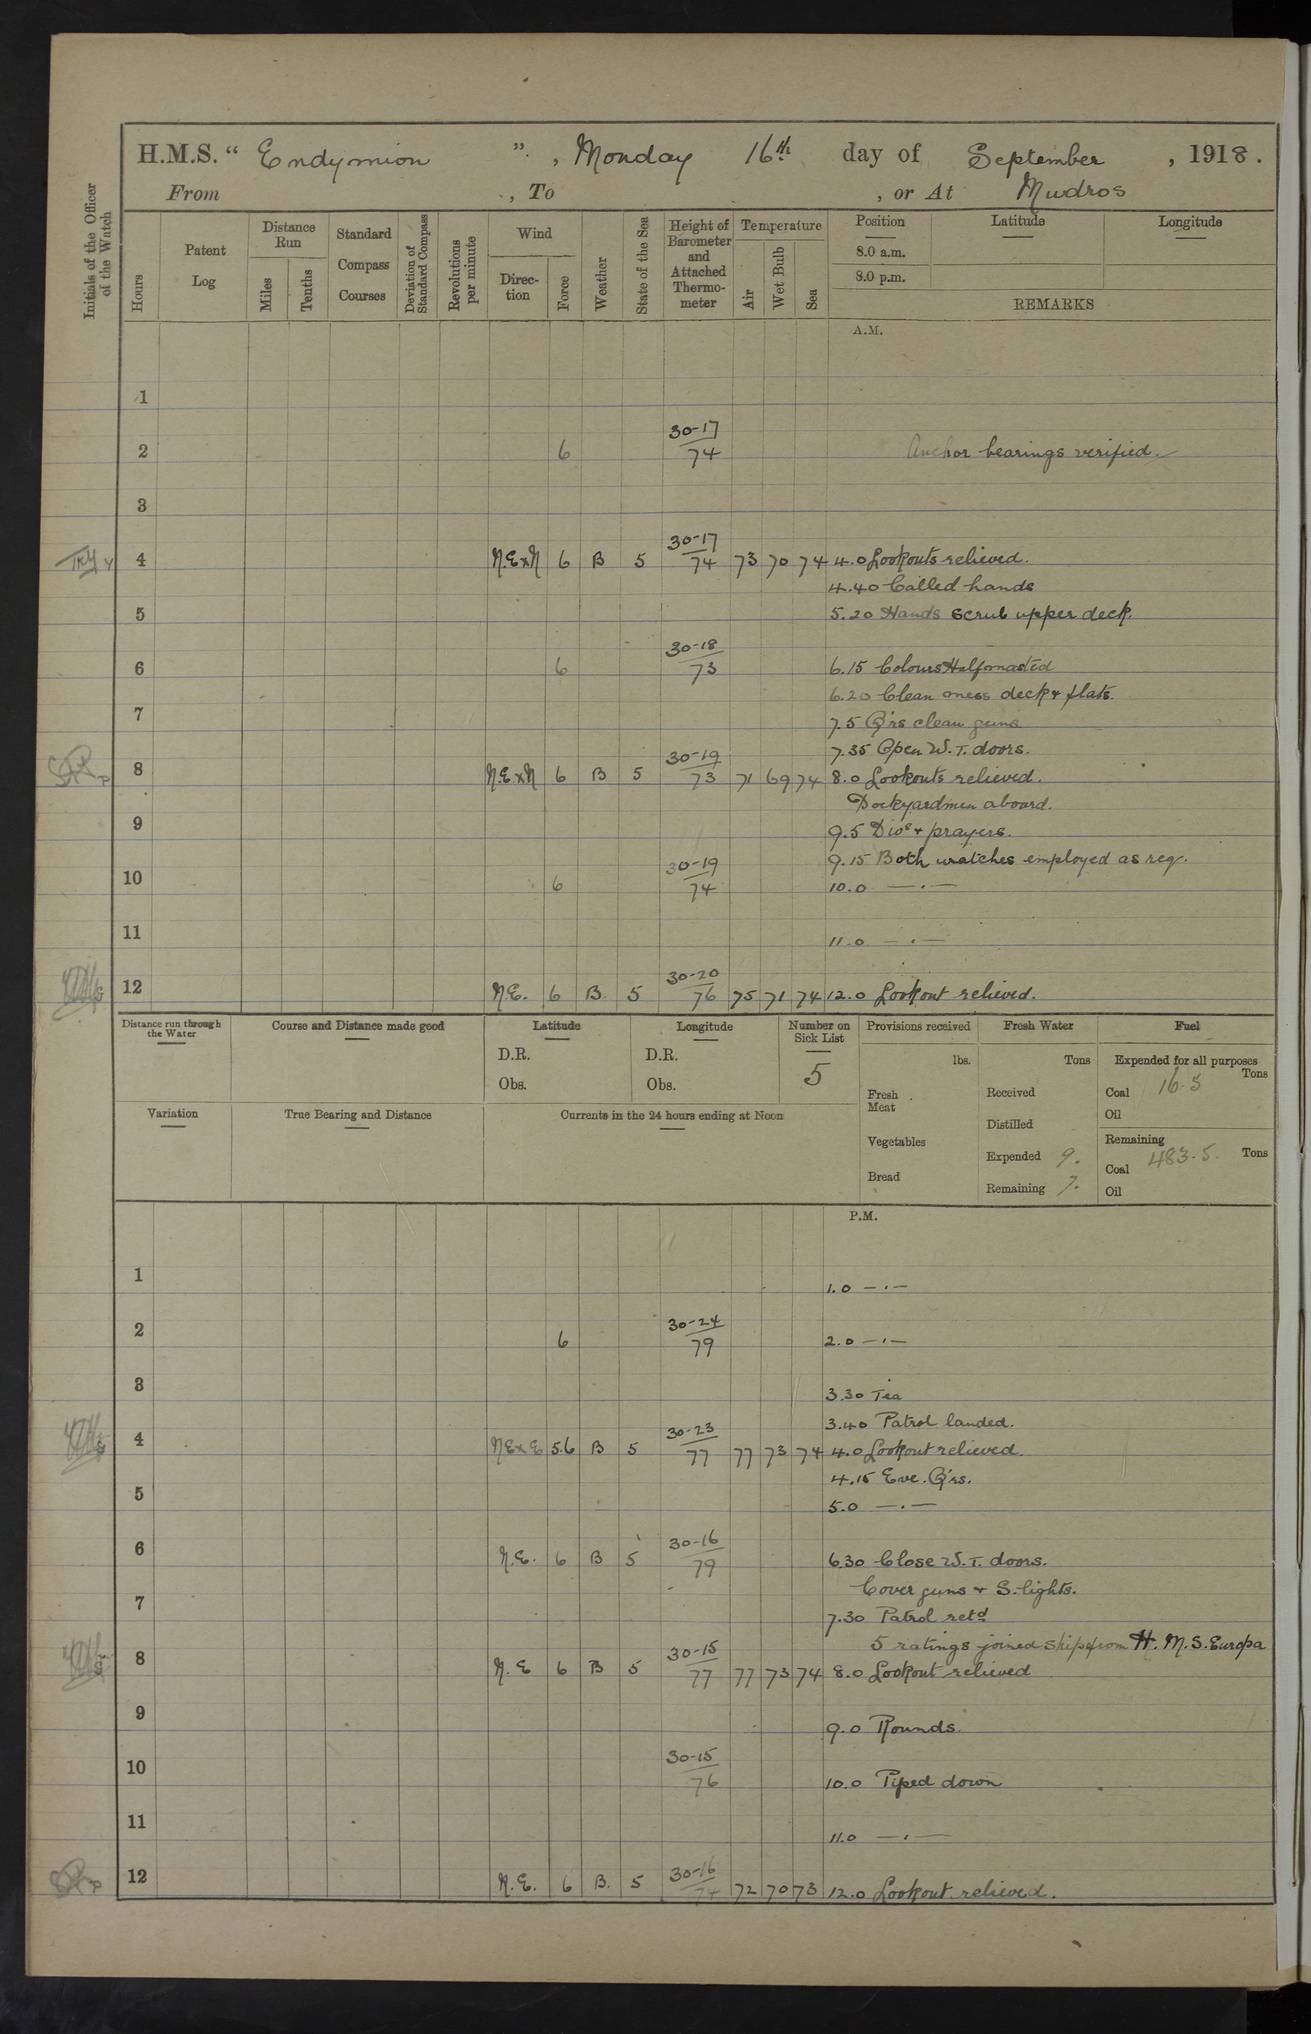 H.M.S. “ Endymion ”. , Monday 16th day of September , 1918.
From , To , or At Mudros
Initials of the Officer of the Watch
Hours
Patent Log
Distance Run
Miles
Tenths
Standard Compass Courses
Deviation of Standard Compass
Revolutions per minute
Wind
Direc-tion
Force
Weather
State of the Sea
Height of Barometer and Attached Thermo-meter
Temperature
Air
Wet Bulb
Sea
Position Latitude Longitude
8.0 a.m.
8.0 p.m.
REMARKS
A.M.
1
2 6 30-17/74 Anchor bearings verified.
3
4 N.E.xN 6 B 5 30-17/74 73 70 74 4.0 Lookouts relieved.
4.40 Called hands
5 5.20 Hands scrub upper deck.
6 6 30-18/73 6.15 Colours Halfmasted
6.20 Clean mess deck & flats.
7 7.5 Q'rs clean guns
7.35 Open W.T. doors.
8 N.E.xN 6 B 5 30-19/73 71 69 74 8.0 Lookouts relieved.
Dockyardmen aboard.
9 9.5 Divs & prayers.
9.15 Both watches employed as req.
10 6 30-19/74 10.0 — . —
11 11.0 — . —
12 N.E. 6 B. 5 30-20/76 75 71 74 12.0 Lookout relieved.
Distance run through the Water
Course and Distance made good
Latitude
Longitude
Number on Sick List
Provisions received
Fresh Water
Fuel
D.R. D.R. 5 lbs. Tons Expended for all purposes
Tons
Obs. Obs. Fresh Meat Received Coal 16.5
Oil
Variation True Bearing and Distance Currents in the 24 hours ending at Noon
Distilled
Vegetables Remaining
Expended 9. Coal 483.5. Tons
Bread Remaining 7. Oil
P.M.
1 1.0 — . —
2 6 30-24/79 2.0 — . —
3 3.30 Tea
3.40 Patrol landed.
4 NExE 5.6 B 5 30-23/77 77 73 74 4.0 Lookout relieved.
4.15 Eve. Q'rs.
5 5.0 — . —
6 N.E. 6 B 5 30-16/79 6.30 Close W.T. doors.
Cover guns & S. lights.
7 7.30 Patrol retd
5 ratings joined ship from H.M.S. Europa
8 N.E 6 B 5 30-15/77 77 73 74 8.0 Lookout relieved
9 9.0 Rounds.
10 30-15/76 10.0 Piped down
11 11.0 — . —
12 N.E. 6 B. 5 30-16/74 72 70 73 12.0 Lookout relieved.